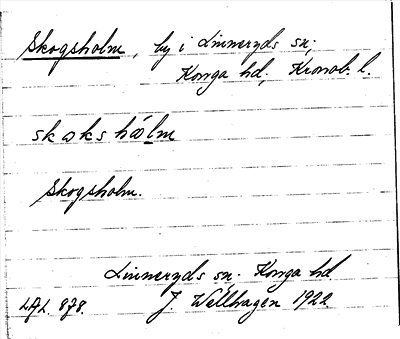 Skogsholm, by i Linneryds sn,
Konga hd, Kronob. l.
skɷkshälm
Skogsholm.
Linneryds sn. Konga hd
LAL. 878. J. Wellhagen 1922